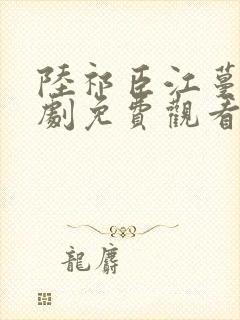 陸祁臣江蔓
劇免費觀看
龍麝